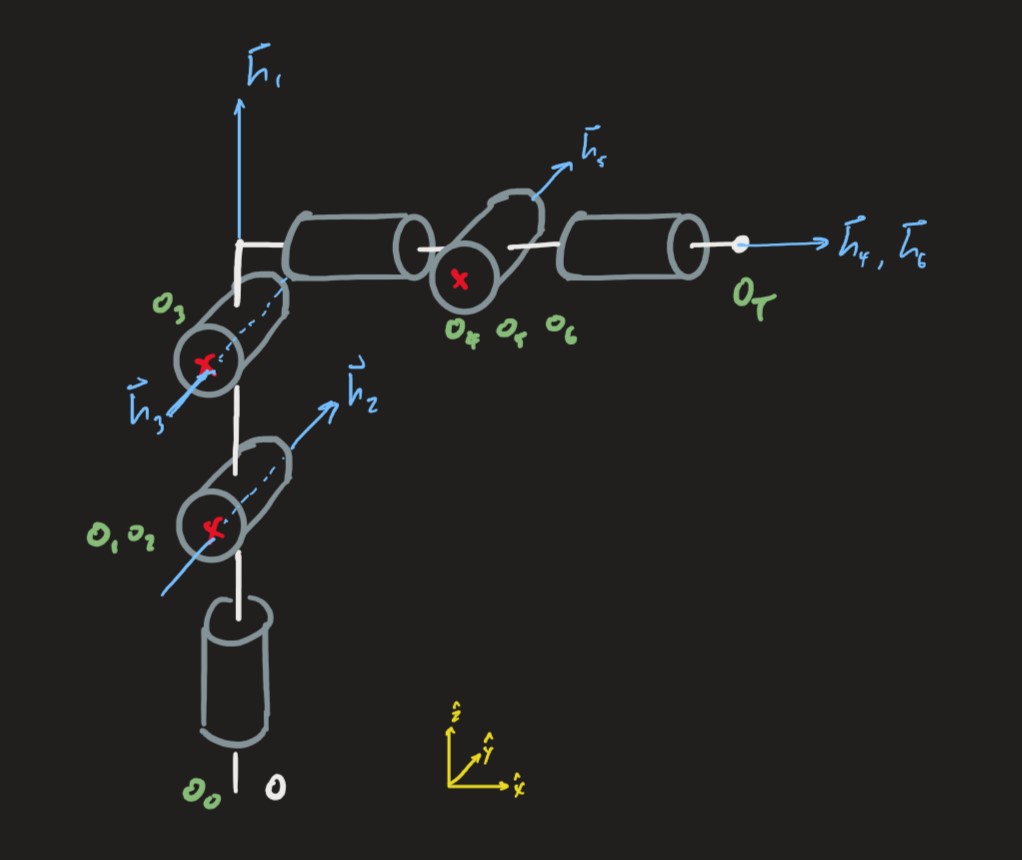 h⃗₁
h⃗₅
h⃗₄, h⃗₆
O₃
O_T
O₄ O₅ O₆
h⃗₃
h⃗₂
O₁ O₂
ẑ
ŷ
x̂
O₀ O